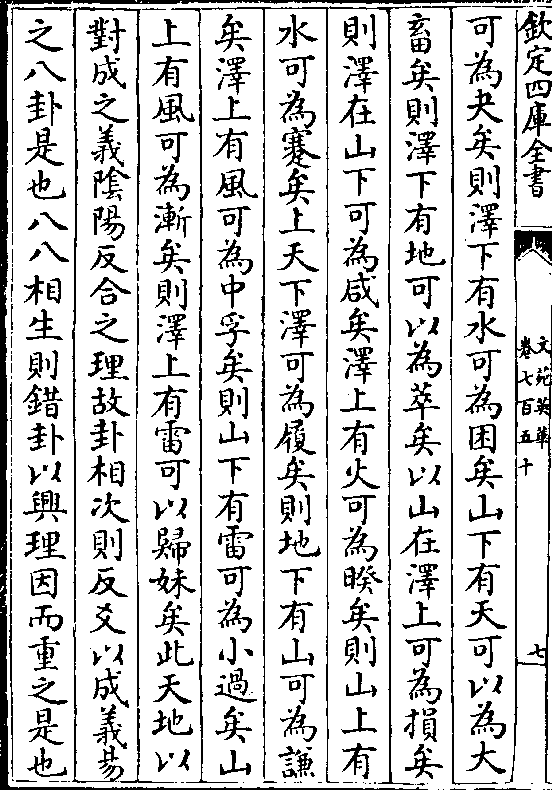 欽定四庫全書
文苑英華
卷七百五十
七
可為夬矣則澤下有水可為困矣山下有天可以為大
畜矣則澤下有地可以為萃矣以山在澤上可為損矣
則澤在山下可為咸矣澤上有火可為睽矣則山上有
水可為蹇矣上天下澤可為履矣則地下有山可為謙
矣澤上有風可為中孚矣則山下有雷可為小過矣山
上有風可為漸矣則澤上有雷可以歸妹矣此天地以
對成之義陰陽反合之理故卦相次則反爻以成義昜
之八卦是也八八相生則錯卦以興理因而重之是也